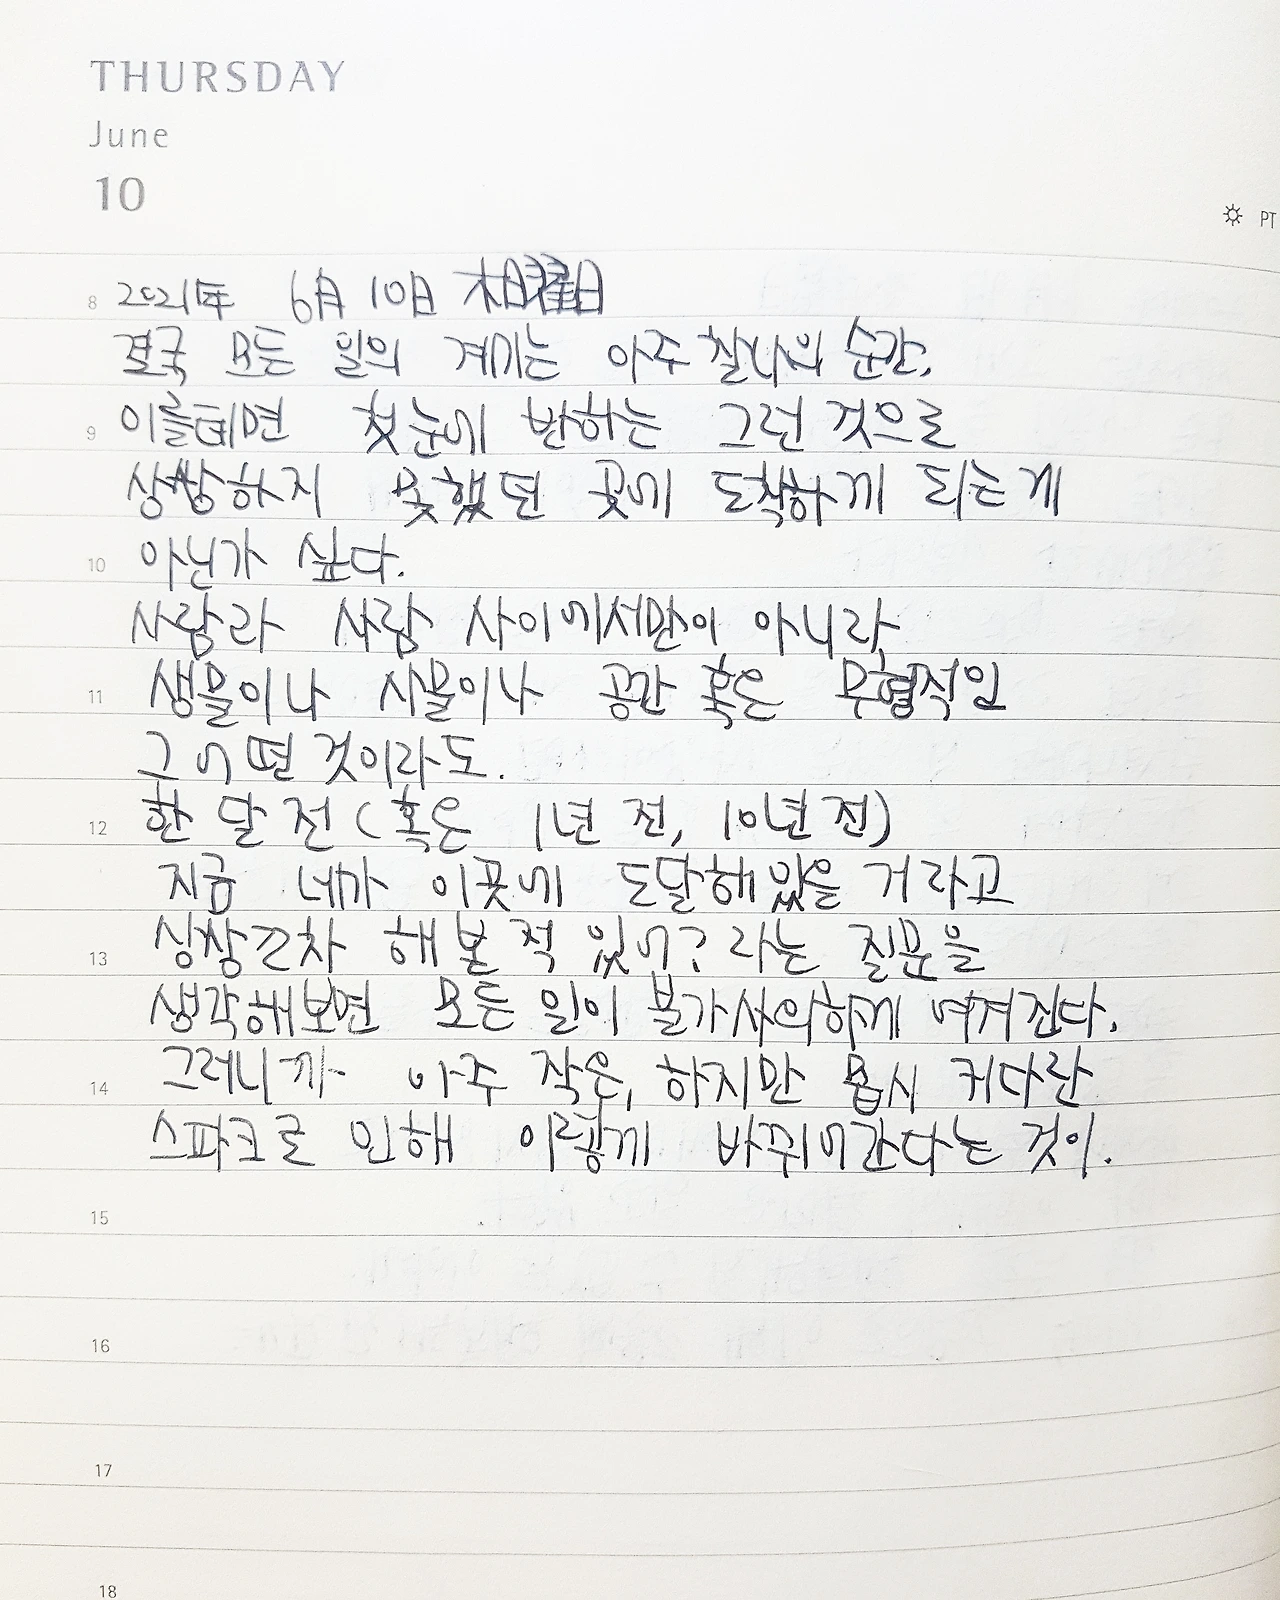 THURSDAY
June
10
PT
8 2021年 6月 10日 木曜日
결국 모든 일의 계기는 아주 찰나의 순간,
9 이를테면 첫눈에 반하는 그런 것으로
상상하지 못했던 곳에 도착하게 되는게
10 아닌가 싶다.
사람과 사람 사이에서만이 아니라,
11 생물이나 사물이나 공간 혹은 무형적인
그 어떤 것이라도.
12 한 달 전(혹은 1년 전, 10년 전)
지금 네가 이곳에 도달해있을 거라고
13 상상조차 해 본 적 있어? 라는 질문을
생각해보면 모든 일이 불가사의하게 여겨진다.
14 그러니까 아주 작은, 하지만 몹시 커다란
스파크로 인해 이렇게 바뀌어간다는 것이.
15
16
17
18